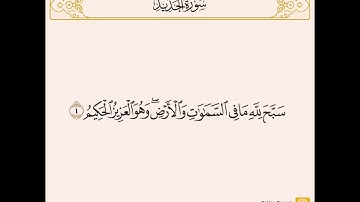 سورة الحديد
سَبَّحَ لِلَّهِ مَا فِي السَّمَاوَاتِ وَالْأَرْضِ ۖ وَهُوَ الْعَزِيزُ الْحَكِيمُ ١